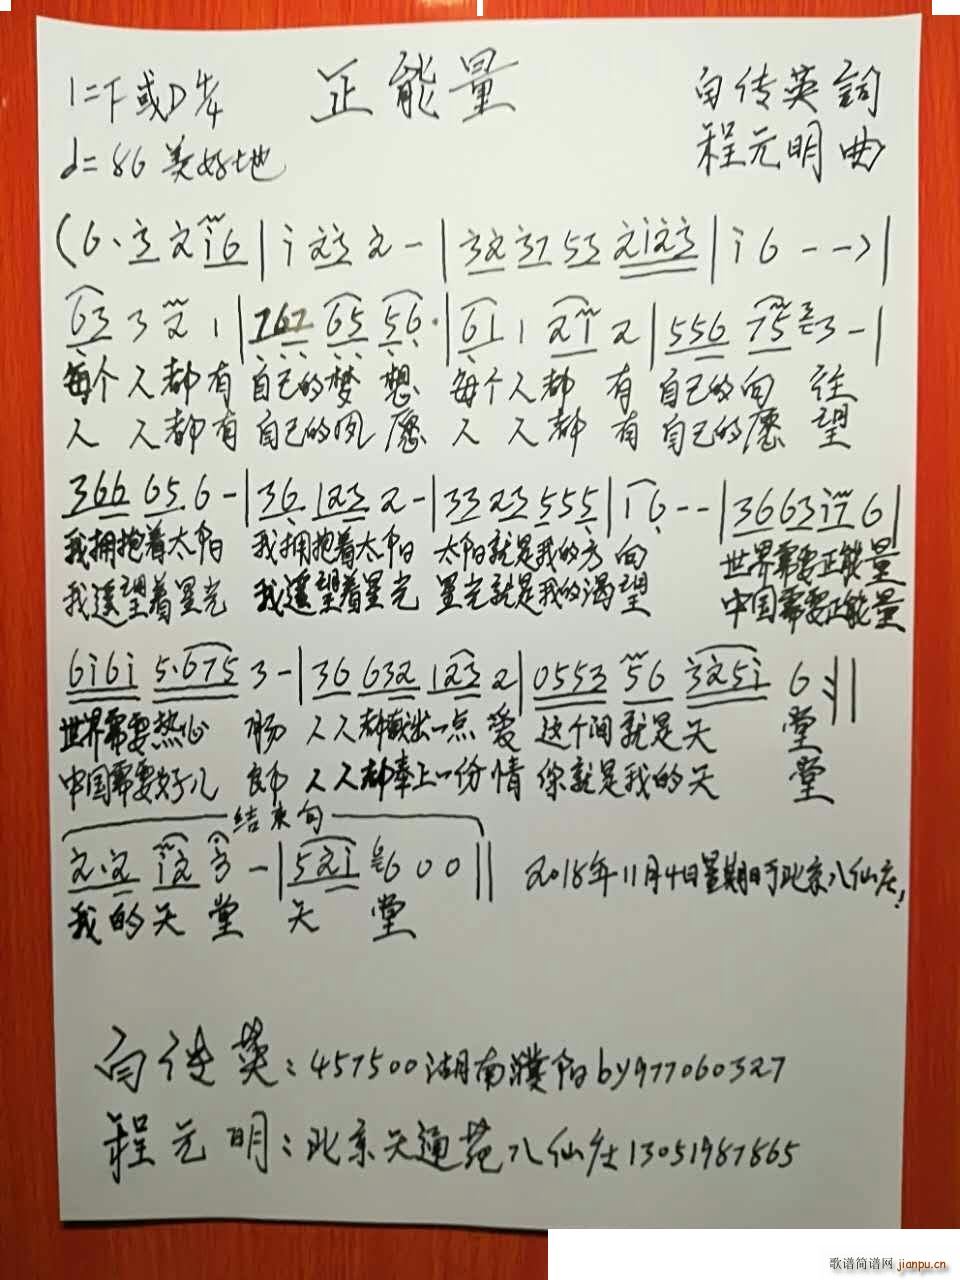 正能量
1=F或D 4/4 白传英 詞
♩=86 美好地 程元明 曲
(6· 3 2 i 6 | i 2 3 2 - | 3 2 3 7 5 3 2 i 2 3 | i 6 - - ) |
6 3 3 2 1 | 7 6 7 6 5 5 6 · | 6 1 1 2 1 2 | 5 5 6 7 5 3 - |
每个人都有 自己的梦 想 每个人都 有 自己的向 往
人 人都有 自己的夙 愿 人 人都 有 自己的愿 望
3 6 6 6 5 6 - | 3 6 1 2 3 2 - | 3 3 2 3 5 5 5 | 1 6 - - | 3 6 6 3 i 7 6 |
我拥抱着太阳 我拥抱着太阳 太阳就是我的方 向 世界需要正能量
我遥望着星光 我遥望着星光 星光就是我的渴望 中国需要正能量
6 i 6 i 5· 6 7 5 3 - | 3 6 6 3 2 1 2 3 2 | 0 5 5 3 5 6 3 2 5 i 6 :||
世界需要热心 肠 人人都献出一点 爱 这个间就是天 堂
中国需要好儿 郎 人人都奉上一份 情 你就是我的天 堂
结束句
2· 2 i 2 3 - | 5 2 i 6 0 0 ||
我的天 堂 天 堂 2018年11月4日星期日于北京八仙庄!
白传英:457500湖南濮阳by977060327
程元明:北京天通苑八仙庄13051987865
歌谱简谱网 jianpu.cn